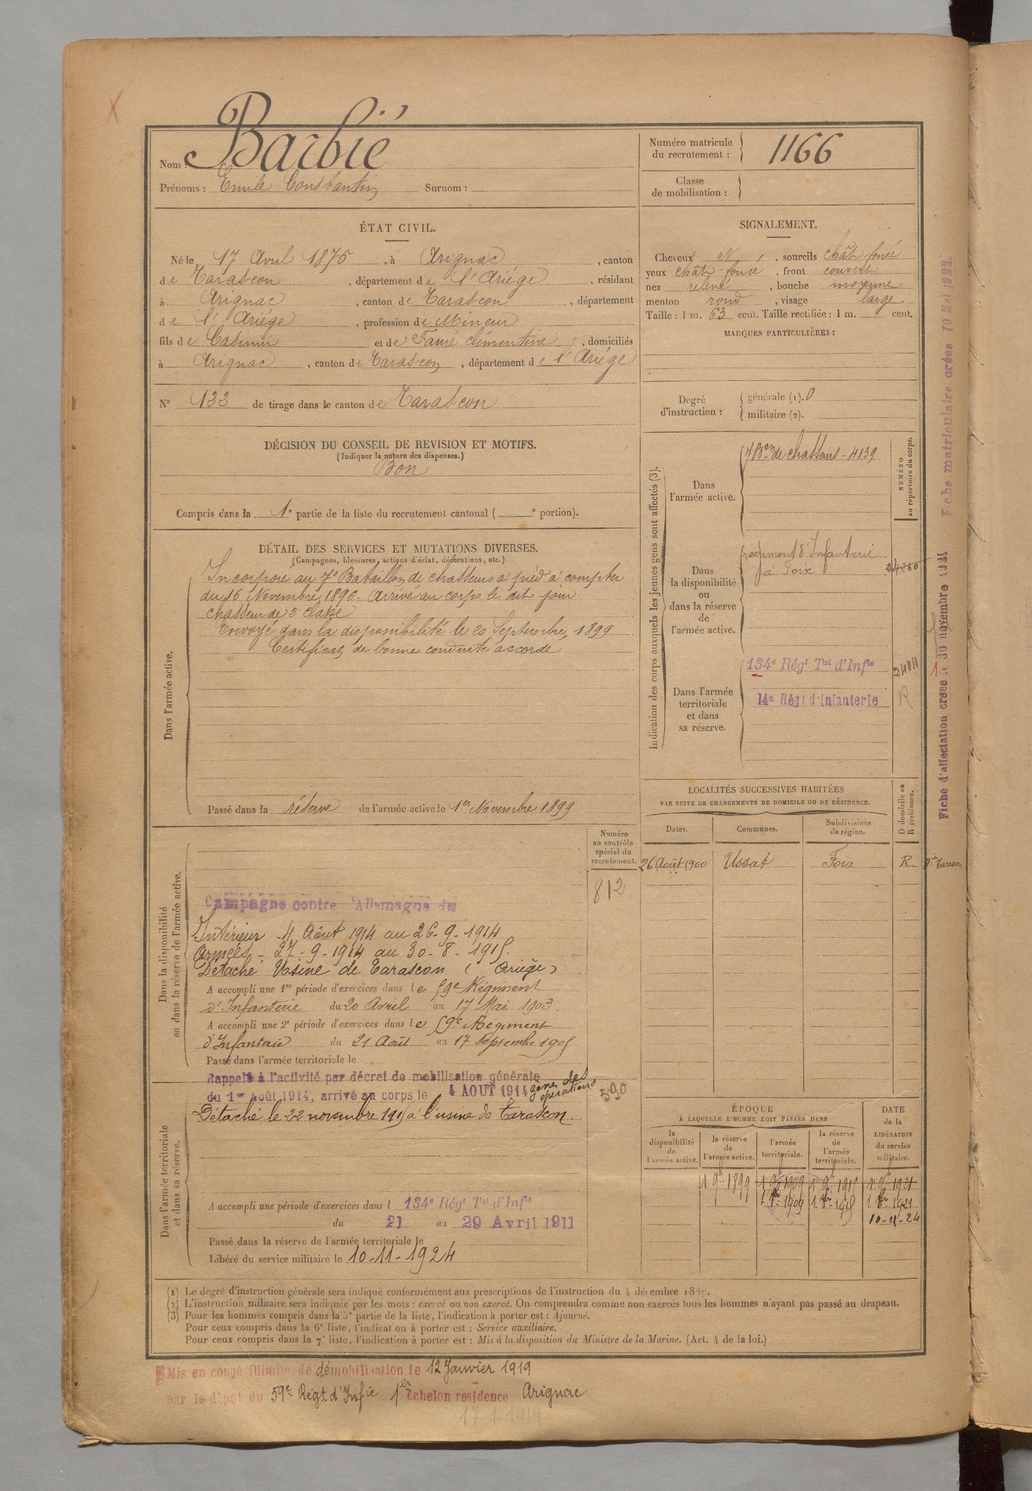 Barbié
Nom :
Prénoms : Emile Constantin Surnom :
Numéro matricule du recrutement : 1166
Classe de mobilisation :
ÉTAT CIVIL.
Né le 17 Avril 1875, à Arignac, canton
de Tarascon, département de l'Ariège, résidant
à Arignac, canton de Tarascon, département
de l'Ariège, profession de Mineur
fils de Casimir et de Faure Clémentine, domiciliés
à Arignac, canton de Tarascon, département de l'Ariège
N° 133 de tirage dans le canton de Tarascon
DÉCISION DU CONSEIL DE REVISION ET MOTIFS.
(Indiquer la nature des dispenses.)
Bon
Compris dans la 1e partie de la liste du recrutement cantonal ( e portion).
SIGNALEMENT.
Cheveux N, sourcils chât foncé
yeux chât foncé, front couvert
nez relevé, bouche moyenne
menton rond, visage large
Taille : 1 m. 63 cent. Taille rectifiée : 1 m. cent.
MARQUES PARTICULIÈRES :
Degré d'instruction : générale (1). 0
militaire (2).
Indication des corps auxquels les jeunes gens sont affectés (3).
NUMÉRO au répertoire du corps.
Dans l'armée active.
7 Bon de chasseurs - 4139
Dans la disponibilité ou dans la réserve de l'armée active.
régiment d'Infanterie
à Foix
Dans l'armée territoriale et dans sa réserve.
134e Régt Tal d'Infie
14e Régt d'Infanterie
R
DÉTAIL DES SERVICES ET MUTATIONS DIVERSES.
(Campagnes, blessures, actions d'éclat, décorations, etc.)
Dans l'armée active.
Incorporé au 7e Bataillon de chasseurs à pied à compter
du 16 Novembre 1896. Arrivé au corps le dit jour
chasseur de 2e classe
Envoyé dans la disponibilité le 20 Septembre 1899
Certificat de bonne conduite accordé
Passé dans la réserve de l'armée active le 1er Novembre 1899
LOCALITÉS SUCCESSIVES HABITÉES
PAR SUITE DE CHANGEMENTS DE DOMICILE OU DE RÉSIDENCE.
Dates. Communes. Subdivisions de région. D domicile ou R résidence.
26 Août 1900 Ussat Foix R
Numéro au contrôle spécial du recrutement.
812
Dans la disponibilité ou dans la réserve de l'armée active.
Campagne contre l'Allemagne du
Intérieur 4 Août 1914 au 26-9-1914
Armées - 27-9-1914 au 30-8-1915.
Détaché Usine de Tarascon (Ariège)
A accompli une 1re période d'exercices dans le 59e Régiment
d'Infanterie du 20 Avril au 17 Mai 1903
A accompli une 2e période d'exercices dans le 59e Régiment
d'Infanterie du 21 Août au 17 Septembre 1905
Passé dans l'armée territoriale le
Rappelé à l'activité par décret de mobilisation générale
du 1er Août 1914, arrivé au corps le 4 AOUT 1914 zone des opérations
590
Dans l'armée territoriale et dans sa réserve.
Détaché le 22 novembre 1915 à l'usine de Tarascon.
A accompli une période d'exercices dans l 134e Régt Tal d'Infie
du 21 au 29 Avril 1911
Passé dans la réserve de l'armée territoriale le
Libéré du service militaire le 10-11-1924
ÉPOQUE
À LAQUELLE L'HOMME DOIT PASSER DANS
la disponibilité de l'armée active.
la réserve de l'armée active.
l'armée territoriale.
la réserve de l'armée territoriale.
DATE de la LIBÉRATION du service militaire.
1 9bre 1899
10-11-24
(1) Le degré d'instruction générale sera indiqué conformément aux prescriptions de l'instruction du 4 décembre
(2) L'instruction militaire sera indiquée par les mots : exercé ou non exercé. On comprendra comme non exercés tous les hommes n'ayant pas passé au drapeau.
(3) Pour les hommes compris dans la 5e partie de la liste, l'indication à porter est : Ajourné.
Pour ceux compris dans la 6e liste, l'indication à porter est : Service auxiliaire.
Pour ceux compris dans la 7e liste, l'indication à porter est : Mis à la disposition du Ministre de la Marine. (Art. 4 de la loi.)
Mis en congé illimité de démobilisation le 12 Janvier 1919
par le dépôt du 59e Régt d'Infie 1er échelon residence Arignac
Fiche matriculaire créée 10 Mai 1922.
Fiche d'affectation créée le 30 novembre